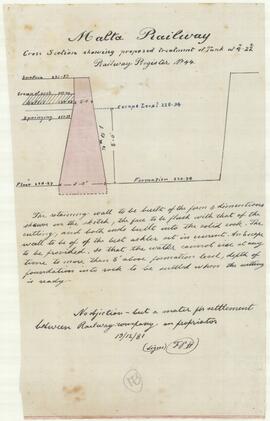 Malta Railway
Cross Section showing proposed treatment of Tank at
Railway Register
Escape Level 228.34
Springing
Floor
Formation
The retaining wall to be built of the form & dimensions
shown on the sketch, the face to be flush with that of the
cutting, and both ends built into the solid rock. The
wall to be of the best ashlar set in cement. An Escape
to be provided, so that the water cannot rise at any
time to more than 5' above formation level, depth of
foundations into rock to be settled when the cutting
is ready.
No objection - but a matter for settlement
between Railway company & proprietor
19/12/81
(signed)